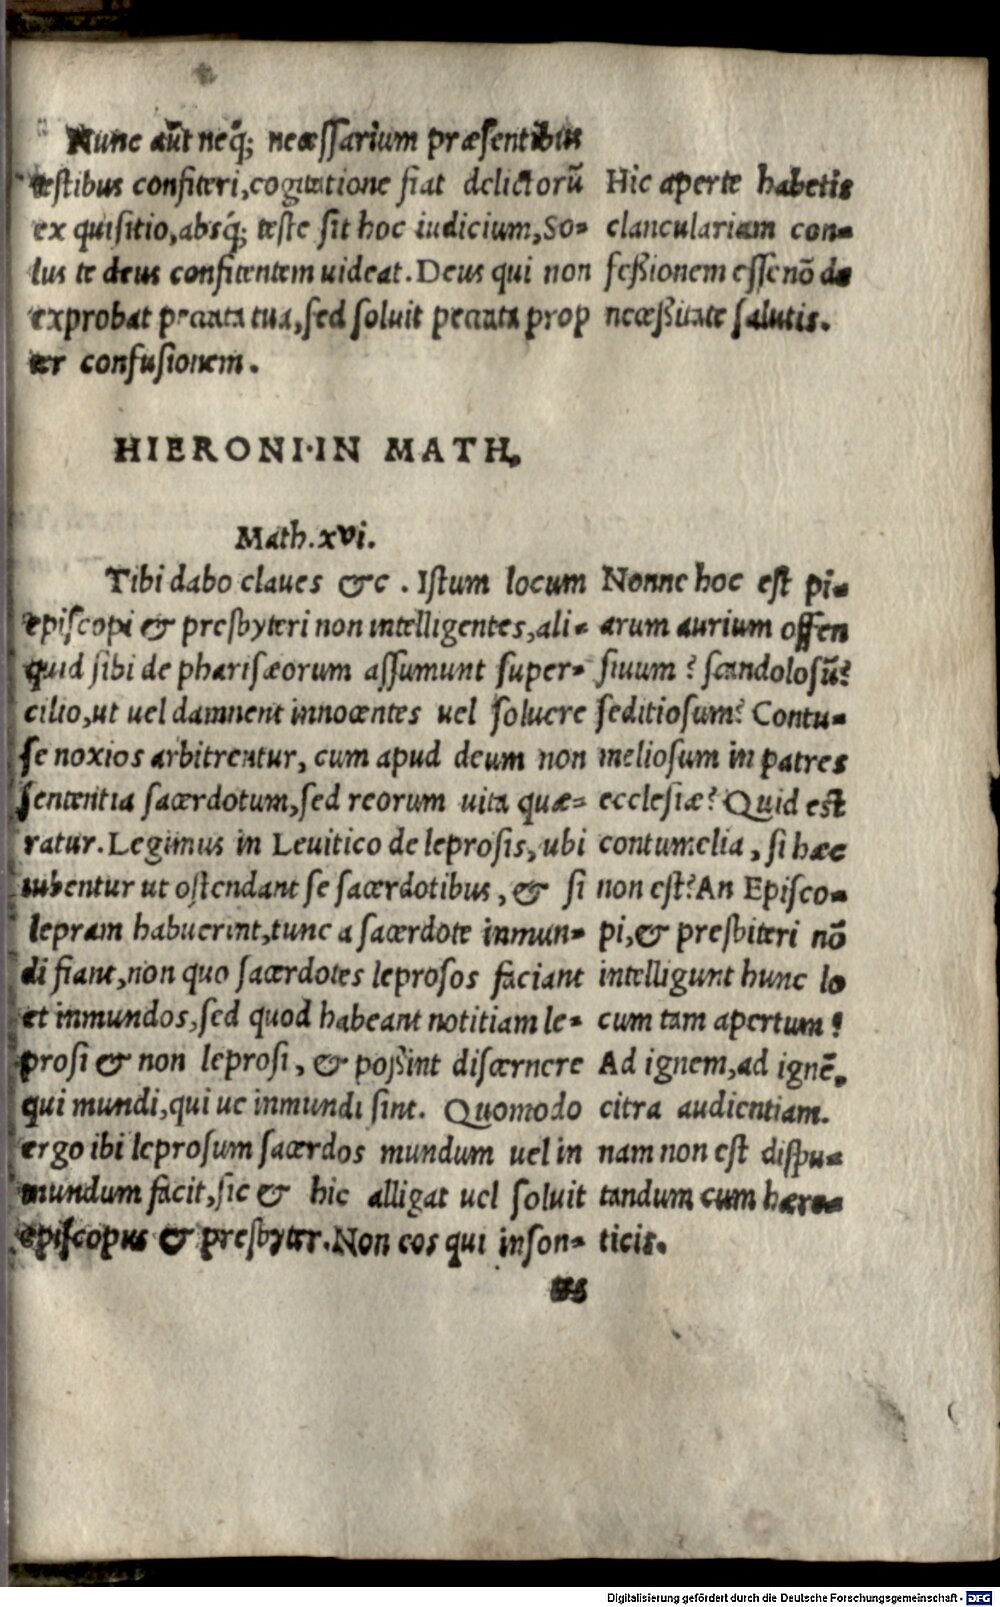 Nunc aūt neq́; necessarium præsentibus
testibus confiteri, cogitatione fiat delictorū
ex quisitio, absq́; teste sit hoc iudicium, So-
lus te deus confitentem uideat. Deus qui non
exprobat peccata tua, sed soluit peccata prop
ter confusionem.
Hic aperte habetis
clanculariam con-
feßionem esse nō de
neceßitate salutis.
HIERONI·IN MATH.
Math. xvi.
Tibi dabo claues &c. Istum locum
episcopi & presbyteri non intelligentes, ali-
quid sibi de pharisæorum assumunt super-
cilio, ut uel damnent innocentes uel soluere
se noxios arbitrentur, cum apud deum non
sententia sacerdotum, sed reorum uita quæ-
ratur. Legimus in Leuitico de leprosis, ubi
iubentur ut ostendant se sacerdotibus, & si
lepram habuerint, tunc a sacerdote inmun-
di fiant, non quo sacerdotes leprosos faciant
et inmundos, sed quod habeant notitiam le-
prosi & non leprosi, & poßint discernere
qui mundi, qui ue inmundi sint. Quomodo
ergo ibi leprosum sacerdos mundum uel in
mundum facit, sic & hic alligat uel soluit
episcopus & presbyter. Non eos qui inson-
Nonne hoc est pi-
arum aurium offen
siuum? scandolosū?
seditiosum? Contu-
meliosum in patres
ecclesiæ? Quid est
contumelia, si hæc
non est? An Episco-
pi, & presbiteri nō
intelligunt hunc lo
cum tam apertum?
Ad ignem, ad ignē.
citra audientiam.
nam non est dispu-
tandum cum hære-
ticis.
tes
Digitalisierung gefördert durch die Deutsche Forschungsgemeinschaft - DFG